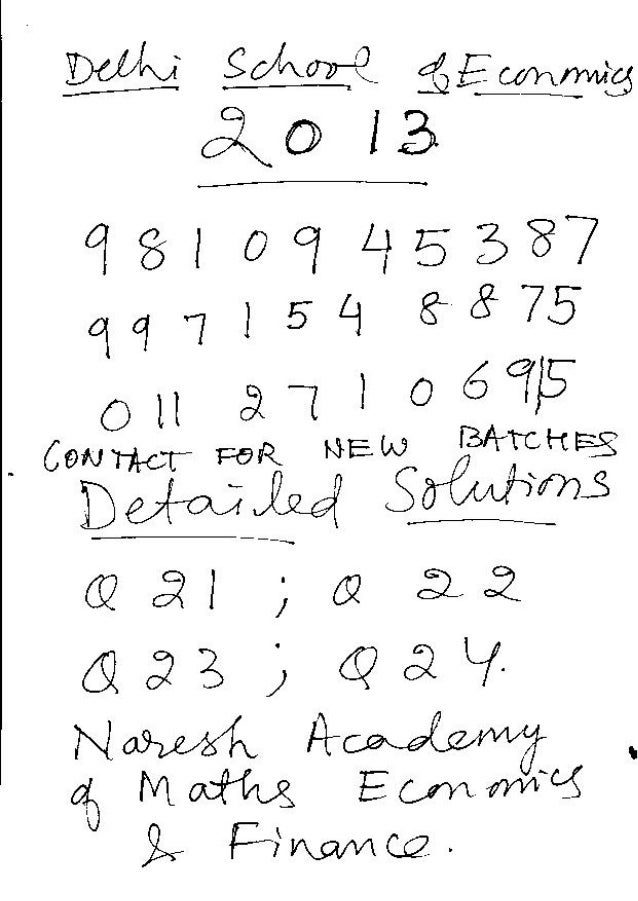 Delhi School of Economics
2013
9810945387
9971548875
011 27106915
CONTACT FOR NEW BATCHES
Detailed Solutions
Q 21 ; Q 22
Q 23 ; Q 24.
Naresh Academy
of Maths Economics
& Finance.